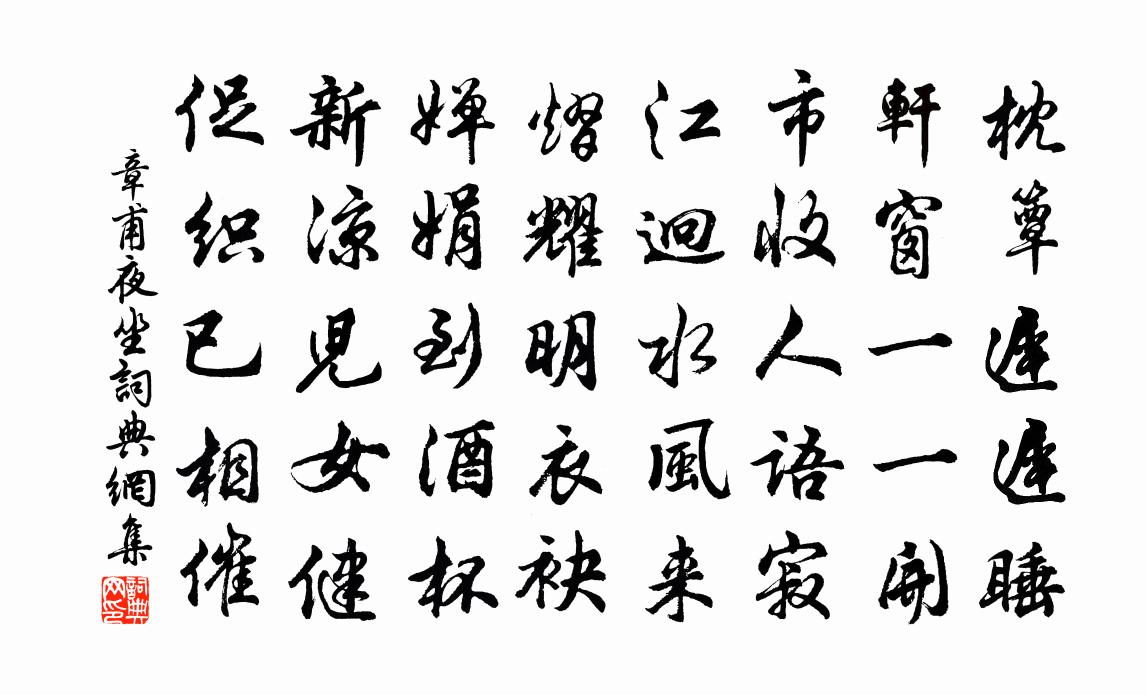 枕簟遲遲睡
軒窗一一開
市收人語寂
江迥水風来
熠耀明衣袂
嬋娟到酒杯
新涼児女健
促织已相催
章甫夜坐詞典網集
詞典网印